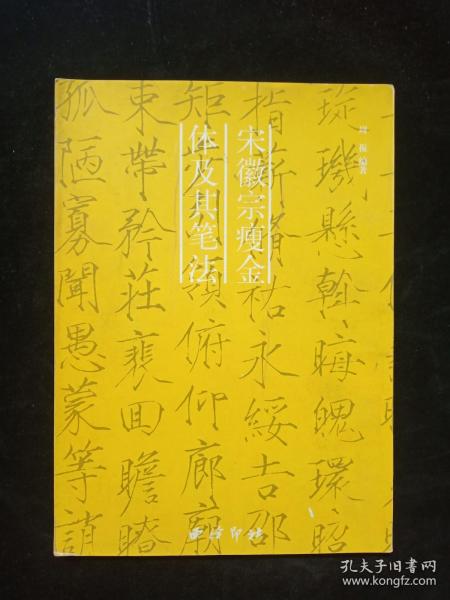 宋徽宗瘦金
体及其笔法
编著
西泠印社
璇璣懸斡晦魄環昭
指薪脩祐永綏吉邵
矩步引領俯仰廊廟
束帶矜莊裴回瞻眺
孤陋寡聞愚蒙等誚
孔夫子旧书网
www.kongfz.com